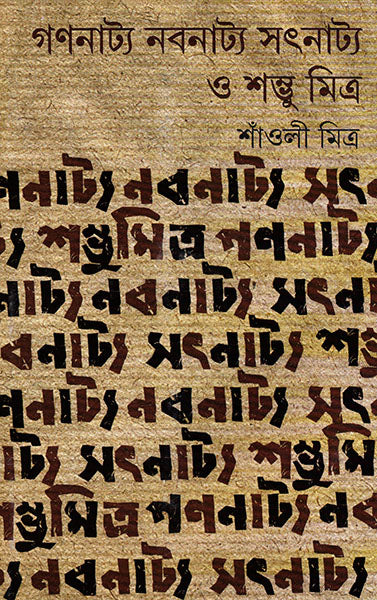 গণনাট্য নবনাট্য সৎনাট্য
ও শম্ভু মিত্র
শাঁওলী মিত্র
ণনাট্য নবনাট্য সৎ
ট্য শম্ভুমিত্র গণনাট্য
নাট্য নবনাট্য সৎনা
বনাট্য সৎনাট্য শম্ভু
ণনাট্য নবনাট্য সৎন
নাট্য সৎনাট্য শম্ভুমি
শম্ভুমিত্র গণনাট্য নব
ট্য নবনাট্য সৎনাট্য